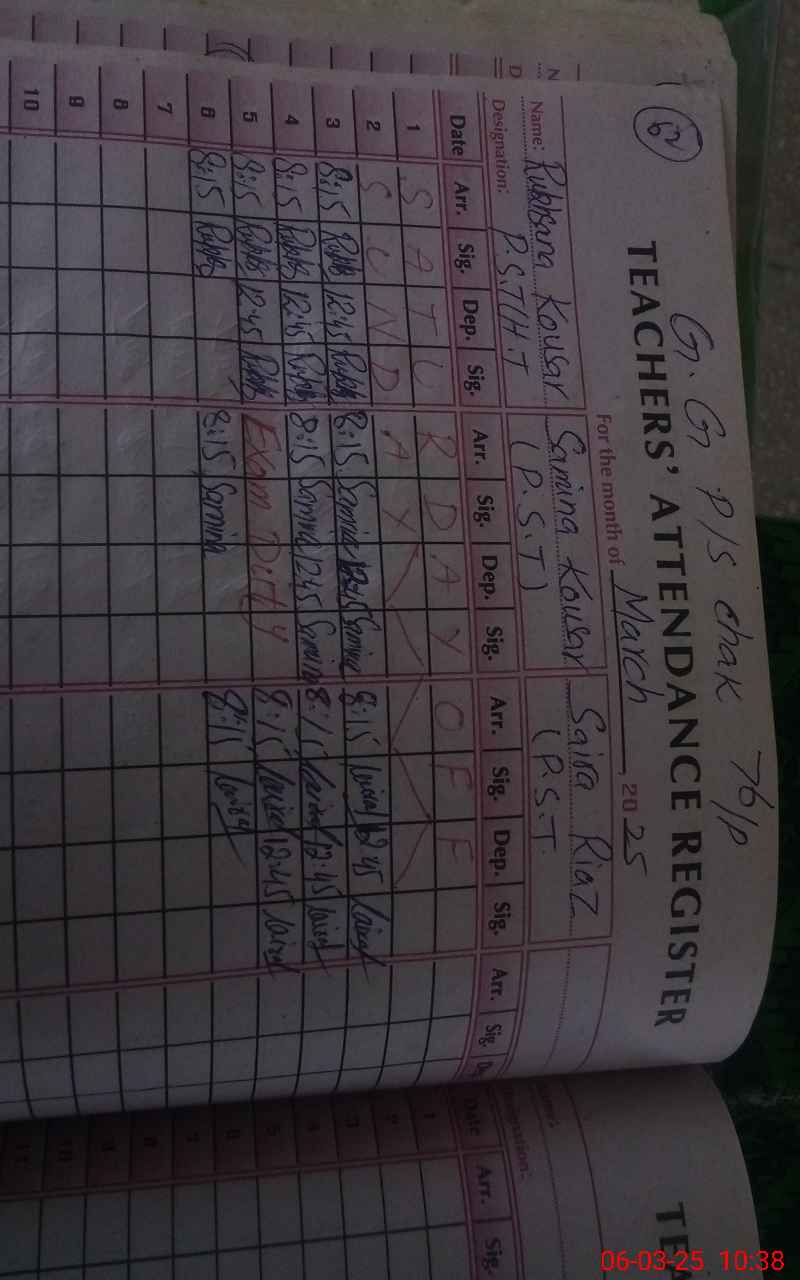 62
G. G P/S chak 76/P
TEACHERS' ATTENDANCE REGISTER
For the month of March, 2025
Name: Rukhsana Kousar Samina Kousar Saira Riaz
Designation: P.S.T/H.T (P.S.T) (P.S.T.
Date Arr. Sig. Dep. Sig. Arr. Sig. Dep. Sig. Arr. Sig. Dep. Sig. Arr. Sig.
1 S A T U R D A Y O F F
2 S U N D A Y
3 8:15 12:45 8:15 Samina 12:45 Samina 8:15 12:45
4 8:15 12:45 8:15 Samina 12:45 Samina 8:15 12:45
5 8:15 12:45 Exam Duty 8:15 12:45
6 8:15 8:15 Samina 8:15
7
8
9
10
Date Arr. Sig.
1
2
3
4
5
6
7
8
9
10
11
06-03-25 10:38